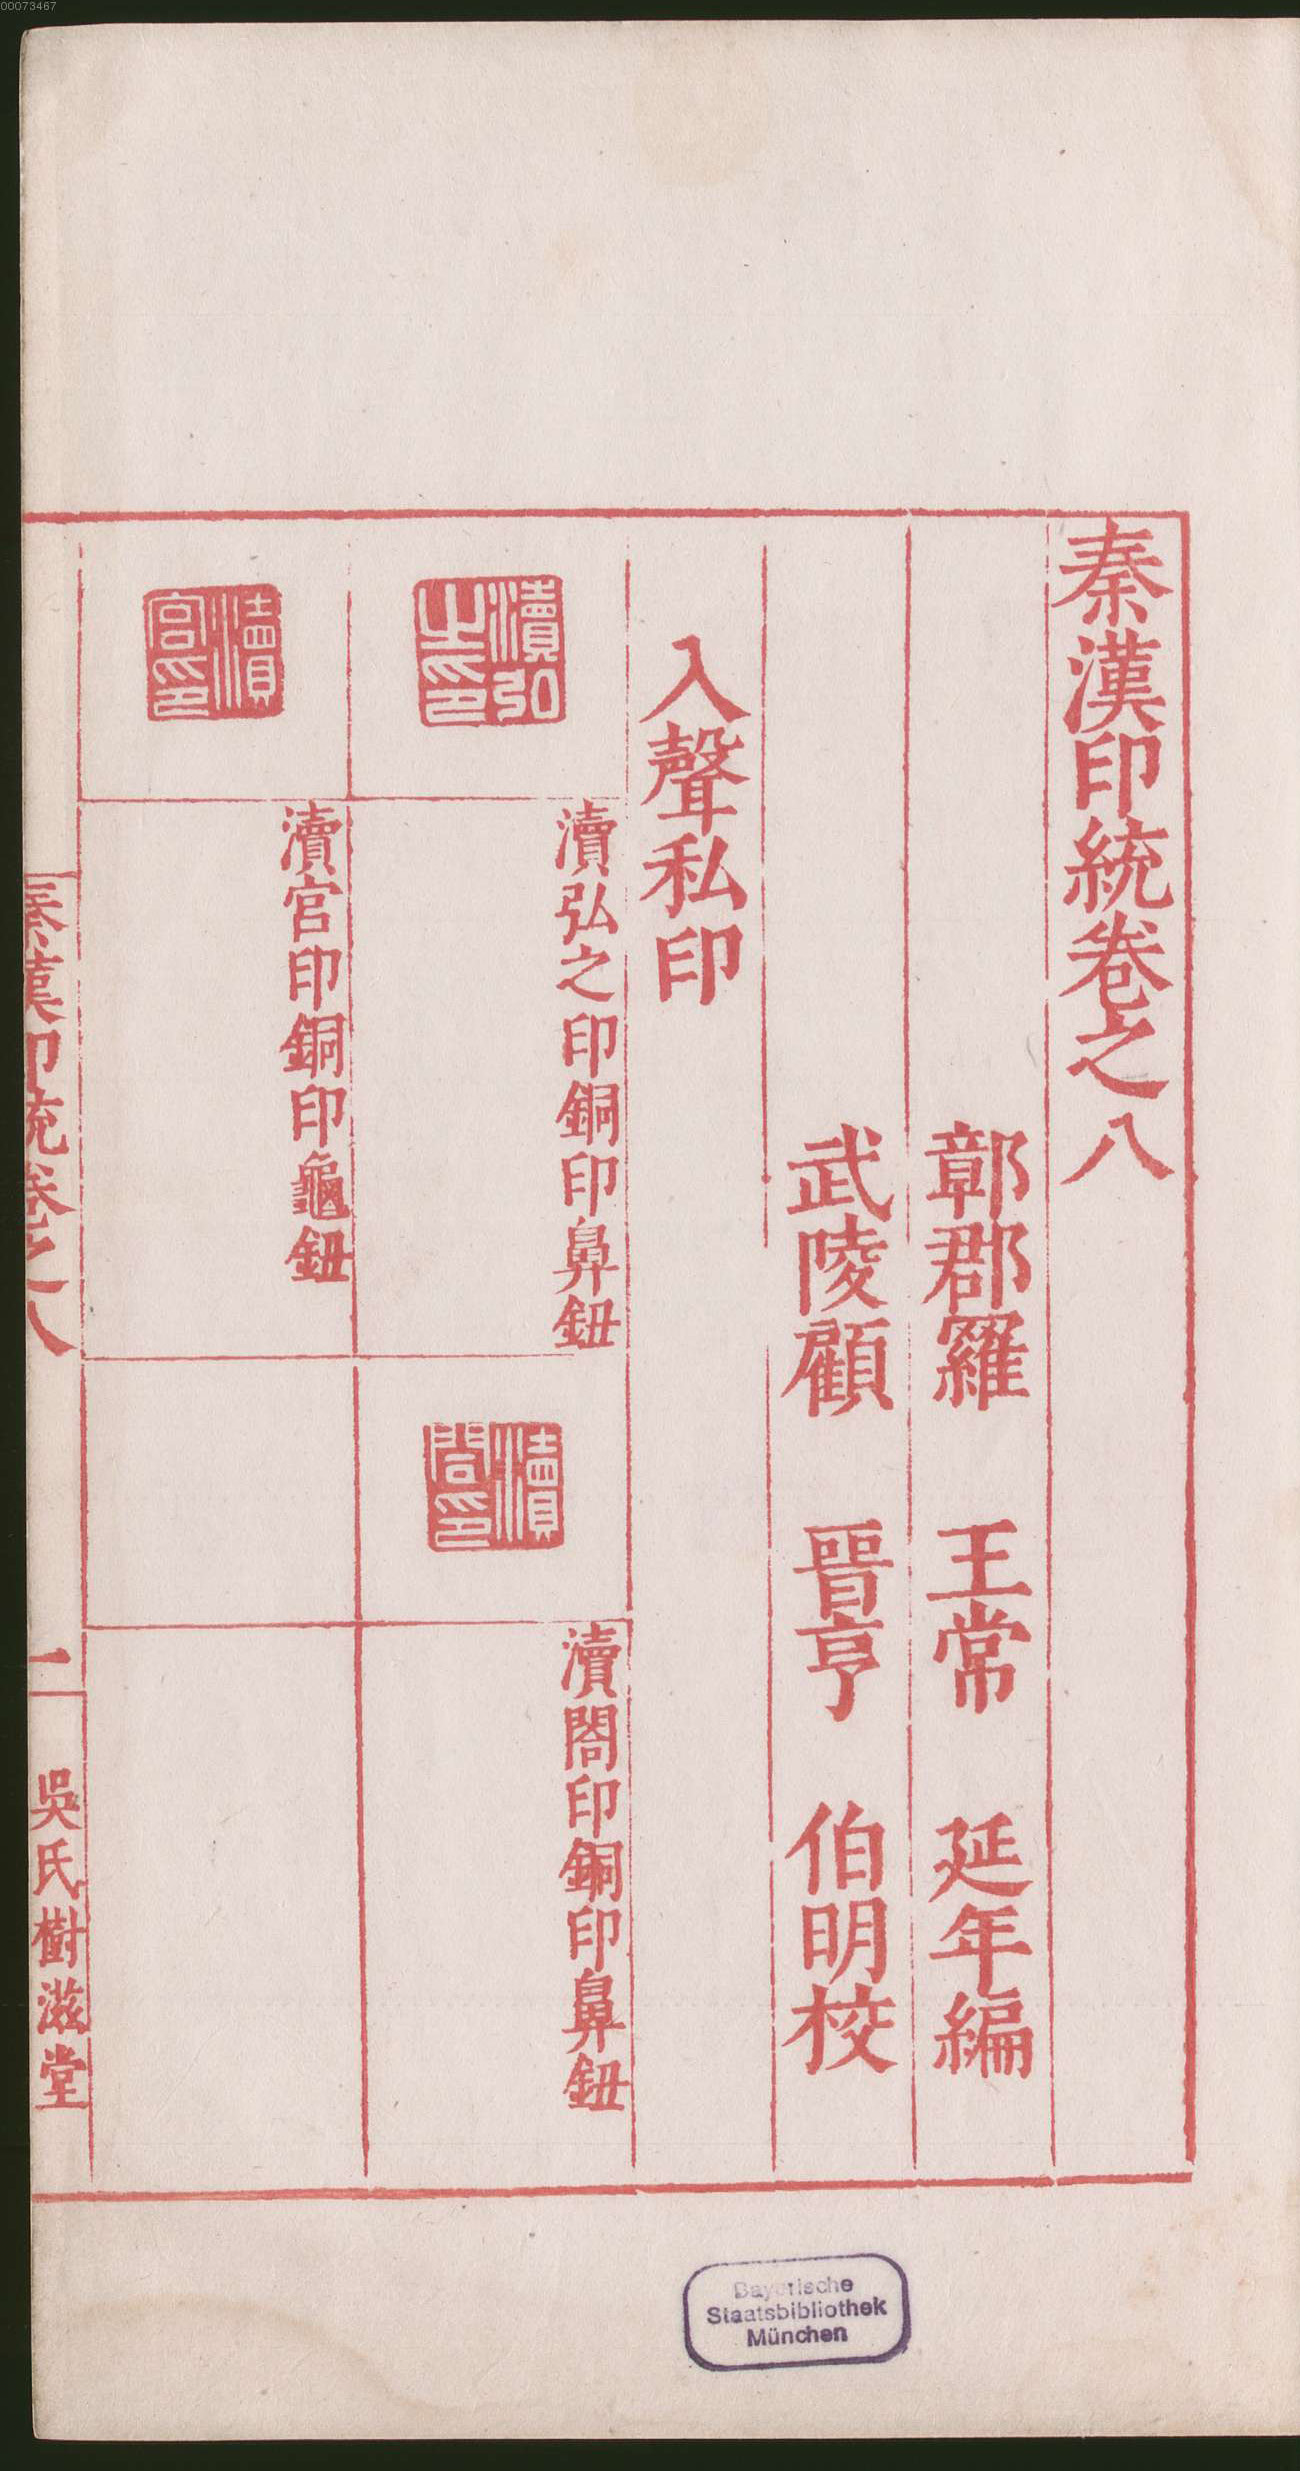 00073467
秦漢印統卷之八
鄣郡羅 王常 延年編
武陵顧 晉亨 伯明校
入聲私印
瀆弘之印
瀆弘之印銅印鼻鈕
瀆閤印
瀆閤印銅印鼻鈕
瀆宮印
瀆宮印銅印龜鈕
秦漢印統卷之八
二
吳氏樹滋堂
Bayerische
Staatsbibliothek
München